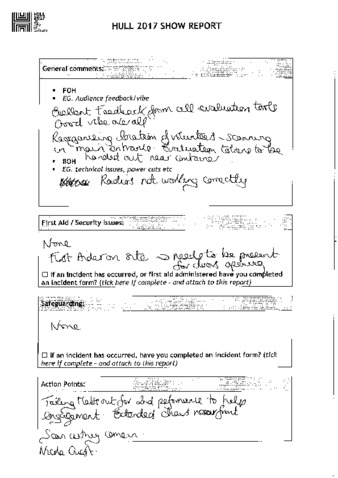 HULL 2017 SHOW REPORT
General comments:
• FOH
• EG. Audience feedback/vibe
Excellent Feedback from all evaluation tools
Good vibe overall
Reorganising location of volunteers - scanning
in main entrance. Evaluation tokens to be
handed out near container
• BOH
• EG. technical issues, power cuts etc
Radios not working correctly
First Aid / Security Issues:
None
First Aider on site → needs to be present
for doors opening
☐ If an incident has occurred, or first aid administered have you completed
an incident form? (tick here if complete - and attach to this report)
Safeguarding:
None
☐ If an incident has occurred, have you completed an incident form? (tick
here if complete - and attach to this report)
Action Points:
Taking Mats out for 2nd performance to help
engagement. Extended chairs near front